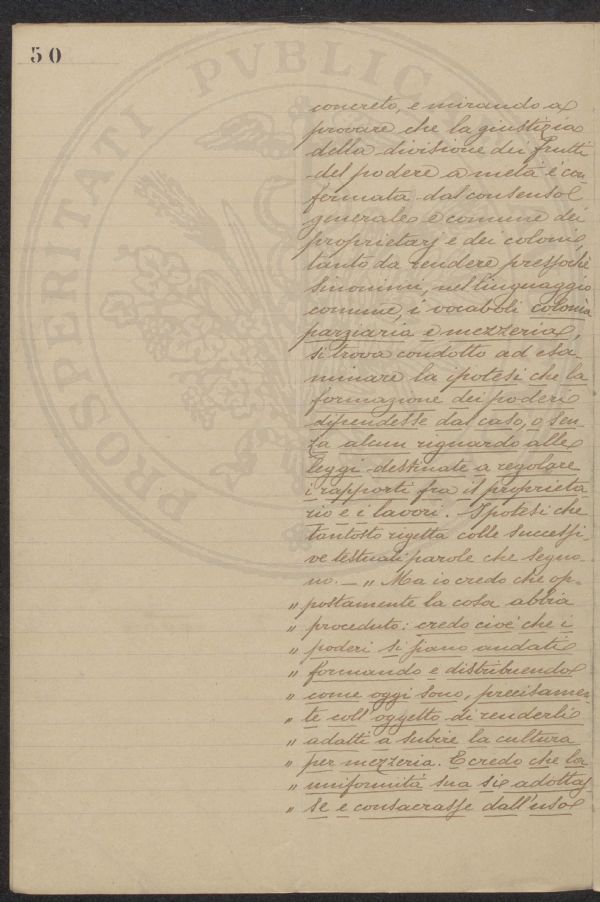 50
PROSPERITATI PVBLICAE
concreto, e mirando a
provare che la giustizia
della divisione dei frutti
del podere a metà è con
formata dal consenso
generale e comune dei
proprietarj e dei coloni,
tanto da rendere pressochè
sinonimi, nel linguaggio
comune, i vocaboli colonìa
parziaria e mezzeria,
si trova condotto ad esa-
minare la ipotesi che la
formazione dei poderi
dipendesse dal caso, o sen-
za alcun riguardo alle
leggi destinate a regolare
i rapporti fra il proprieta
rio e i lavori. Ipotesi che
tantosto rigetta colle successi-
ve testuali parole che segno-
no. — „ Ma io credo che op-
„ postamente la cosa abbia
„ proceduto: credo cioè che i
„ poderi si siano andati
„ formando e distribuendo
„ come oggi sono, precisamen-
„ te coll'oggetto di renderli
„ adatti a subire la cultura
„ per mezzeria. E credo che la
„ uniformità sua si adottas
„ se e consacrasse dall'uso